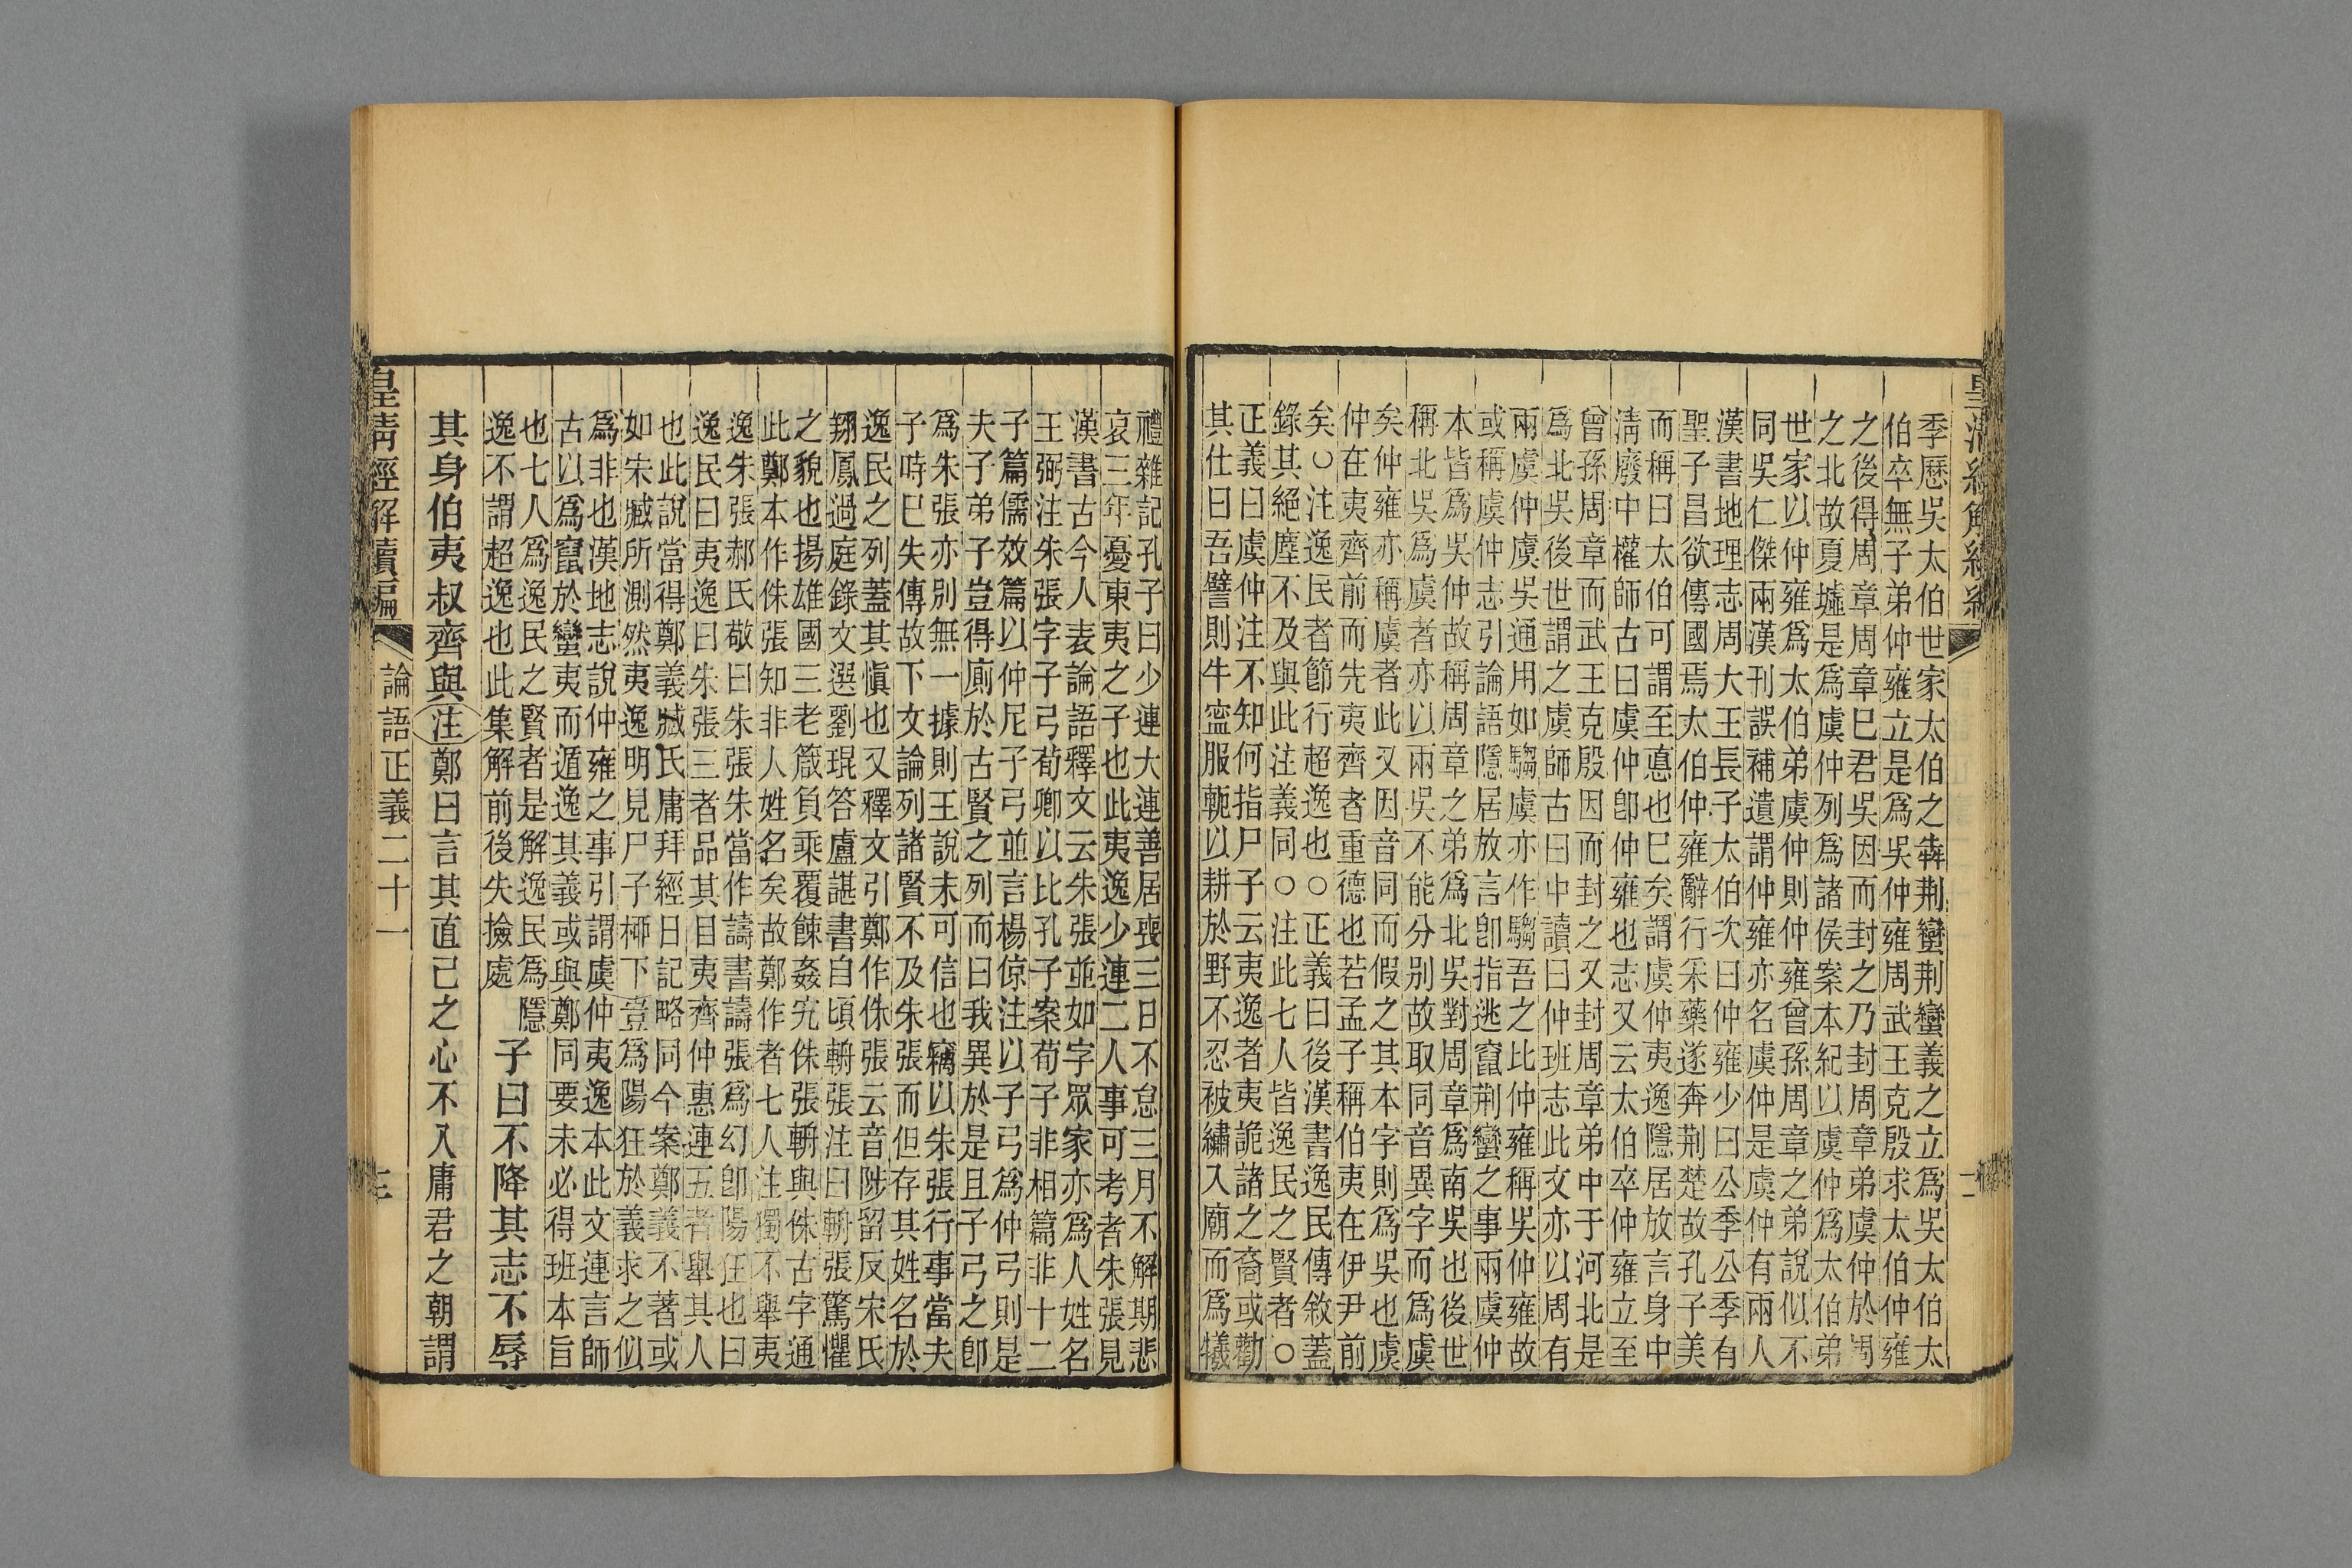 皇淸經解續編
二
季歷吳太伯世家太伯之犇荆蠻荆蠻義之立爲吳太伯太
伯卒無子弟仲雍立是爲吳仲雍周武王克殷求太伯仲雍
之後得周章周章巳君吳因而封之乃封周章弟虞仲於周
之北故夏墟是爲虞仲列爲諸侯案本紀以虞仲爲太伯弟
世家以仲雍爲太伯弟虞仲則仲雍曾孫周章之弟說似不
同吳仁傑兩漢刊誤補遺謂仲雍亦名虞仲是虞仲有兩人
漢書地理志周大王長子太伯次曰仲雍少曰公季公季有
聖子昌欲傳國焉太伯仲雍辭行采藥遂奔荆楚故孔子美
而稱曰太伯可謂至悳也巳矣謂虞仲夷逸隱居放言身中
淸廢中權師古曰虞仲卽仲雍也志又云太伯卒仲雍立至
曾孫周章而武王克殷因而封之又封周章弟中于河北是
爲北吳後世謂之虞師古曰中讀曰仲班志此文亦以周有
兩虞仲虞吳通用如騶虞亦作騶吾之比仲雍稱吳仲雍故
或稱虞仲志引論語隱居放言卽指逃竄荆蠻之事兩虞仲
本皆爲吳仲故稱周章之弟爲北吳對周章爲南吳也後世
稱北吳爲虞者亦以兩吳不能分别故取同音異字而爲虞
矣仲雍亦稱虞者此又因音同而假之其本字則爲吳也虞
仲在夷齊前而先夷齊者重德也若孟子稱伯夷在伊尹前
矣○注逸民者節行超逸也○正義曰後漢書逸民傳敘蓋
錄其絕塵不及與此注義同○注此七人皆逸民之賢者○
正義曰虞仲注不知何指尸子云夷逸者夷詭諸之裔或勸
其仕曰吾譬則牛寍服軛以耕於野不忍被繡入廟而爲犧
禮雜記孔子曰少連大連善居喪三日不怠三月不解期悲
哀三年憂東夷之子也此夷逸少連二人事可考者朱張見
漢書古今人表論語釋文云朱張並如字眾家亦爲人姓名
王弼注朱張字子弓荀卿以比孔子案荀子非相篇非十二
子篇儒效篇以仲尼子弓並言楊倞注以子弓爲仲弓則是
夫子弟子豈得廁於古賢之列而曰我異於是且子弓之卽
爲朱張亦别無一據則王說未可信也竊以朱張行事當夫
子時巳失傳故下文論列諸賢不及朱張而但存其姓名於
逸民之列蓋其愼也又釋文引鄭作侏張云音陟留反宋氏
翔鳳過庭錄文選劉琨答盧諶書自頃輈張注曰輈張驚懼
之貌也揚雄國三老箴負乘覆餗姦宄侏張輈與侏古字通
此鄭本作侏張知非人姓名矣故鄭作者七人注獨不舉夷
逸朱張郝氏敬曰朱張朱當作譸書譸張爲幻卽陽狂也曰
逸民曰夷逸曰朱張三者品其目夷齊仲惠連五者舉其人
也此說當得鄭義臧氏庸拜經日記略同今案鄭義不著或
如宋臧所測然夷逸明見尸子桺下豈爲陽狂於義求之似
爲非也漢地志說仲雍之事引謂虞仲夷逸本此文連言師
古以爲竄於蠻夷而遁逸其義或與鄭同要未必得班本旨
也七人爲逸民之賢者是解逸民爲隱
逸不謂超逸也此集解前後失撿處
子曰不降其志不辱
其身伯夷叔齊與注鄭曰言其直己之心不入庸君之朝謂
皇清經解續編
論語正義二十一
三